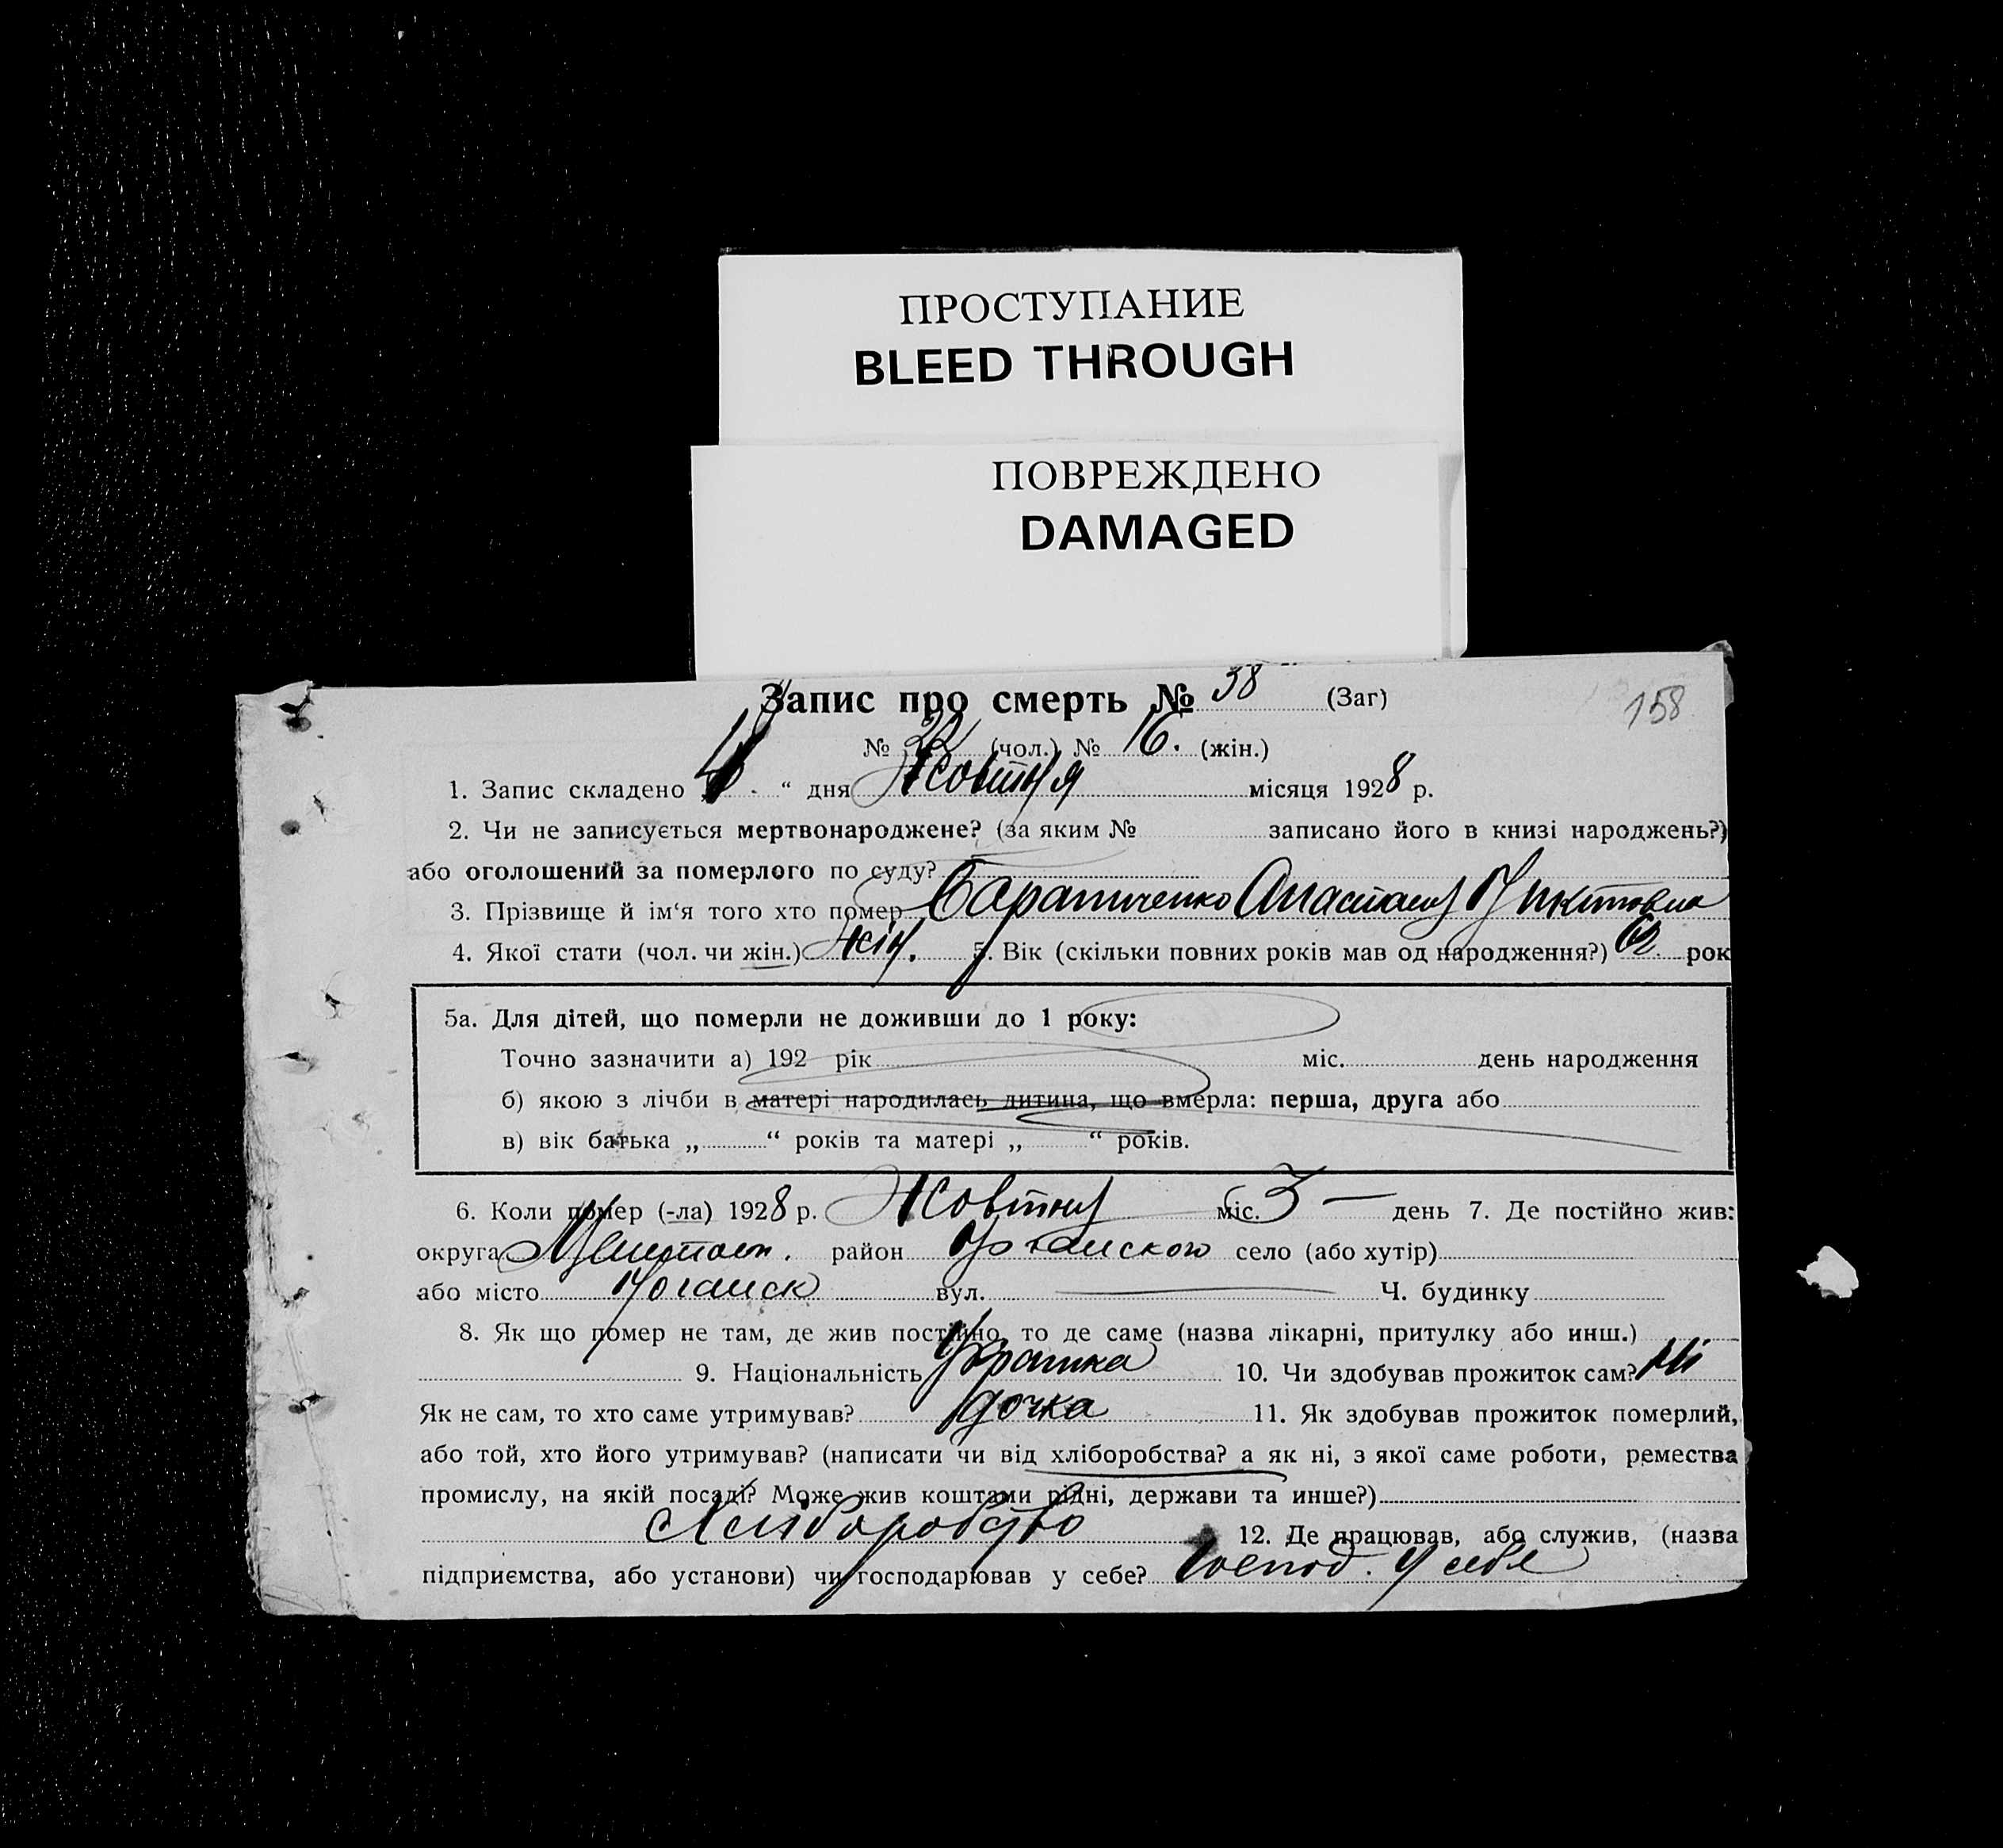 ПРОСТУПАНИЕ
BLEED THROUGH
ПОВРЕЖДЕНО
DAMAGED
Запис про смерть № 38 (Заг)
158
№ 22 (чол.) № 16. (жін.)
1. Запис складено „ “ дня Жовтня місяця 1928 р.
2. Чи не записується мертвонароджене? (за яким № записано його в книзі народжень?)
або оголошений за померлого по суду?
3. Прізвище й ім‘я того хто помер Анастасія Никитовна
4. Якої стати (чол. чи жін.) жін. 5. Вік (скільки повних років мав од народження?) 62 рок
5а. Для дітей, що померли не доживши до 1 року:
Точно зазначити а) 192 рік міс. день народження
б) якою з лічби в матері народилась дитина, що вмерла: перша, друга або
в) вік батька „ “ років та матері „ “ років.
6. Коли помер (-ла) 1928 р. Жовтня міс. 3 — день 7. Де постійно жив:
округа район село (або хутір)
або місто Ногайск вул. — Ч. будинку
8. Як що помер не там, де жив постійно, то де саме (назва лікарні, притулку або инш.)
9. Національність 10. Чи здобував прожиток сам? Ні
Як не сам, то хто саме утримував? дочка 11. Як здобував прожиток померлий,
або той, хто його утримував? (написати чи від хліборобства? а як ні, з якої саме роботи, ремества
промислу, на якій посаді? Може жив коштами рідні, держави та инше?)
Хліборобство 12. Де працював, або служив, (назва
підприємства, або установи) чи господарював у себе? Господ. у себе